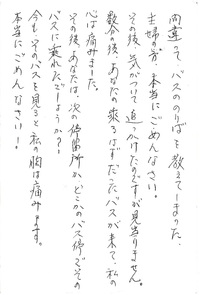 間違って、バスののりばを教えてしまった、
主婦の方、本当にごめんなさい。
その後、気がついて追っかけたのですが見当りません。
数分の後、あなたの乗るはずだったバスが来て、私の
心は痛みました。
その後、あなたは、次の停留所かどこかのバス停でその
バスに乗れたでしょうか？
今も、そのバスを見ると私の胸は痛みます。
本当にごめんなさい！